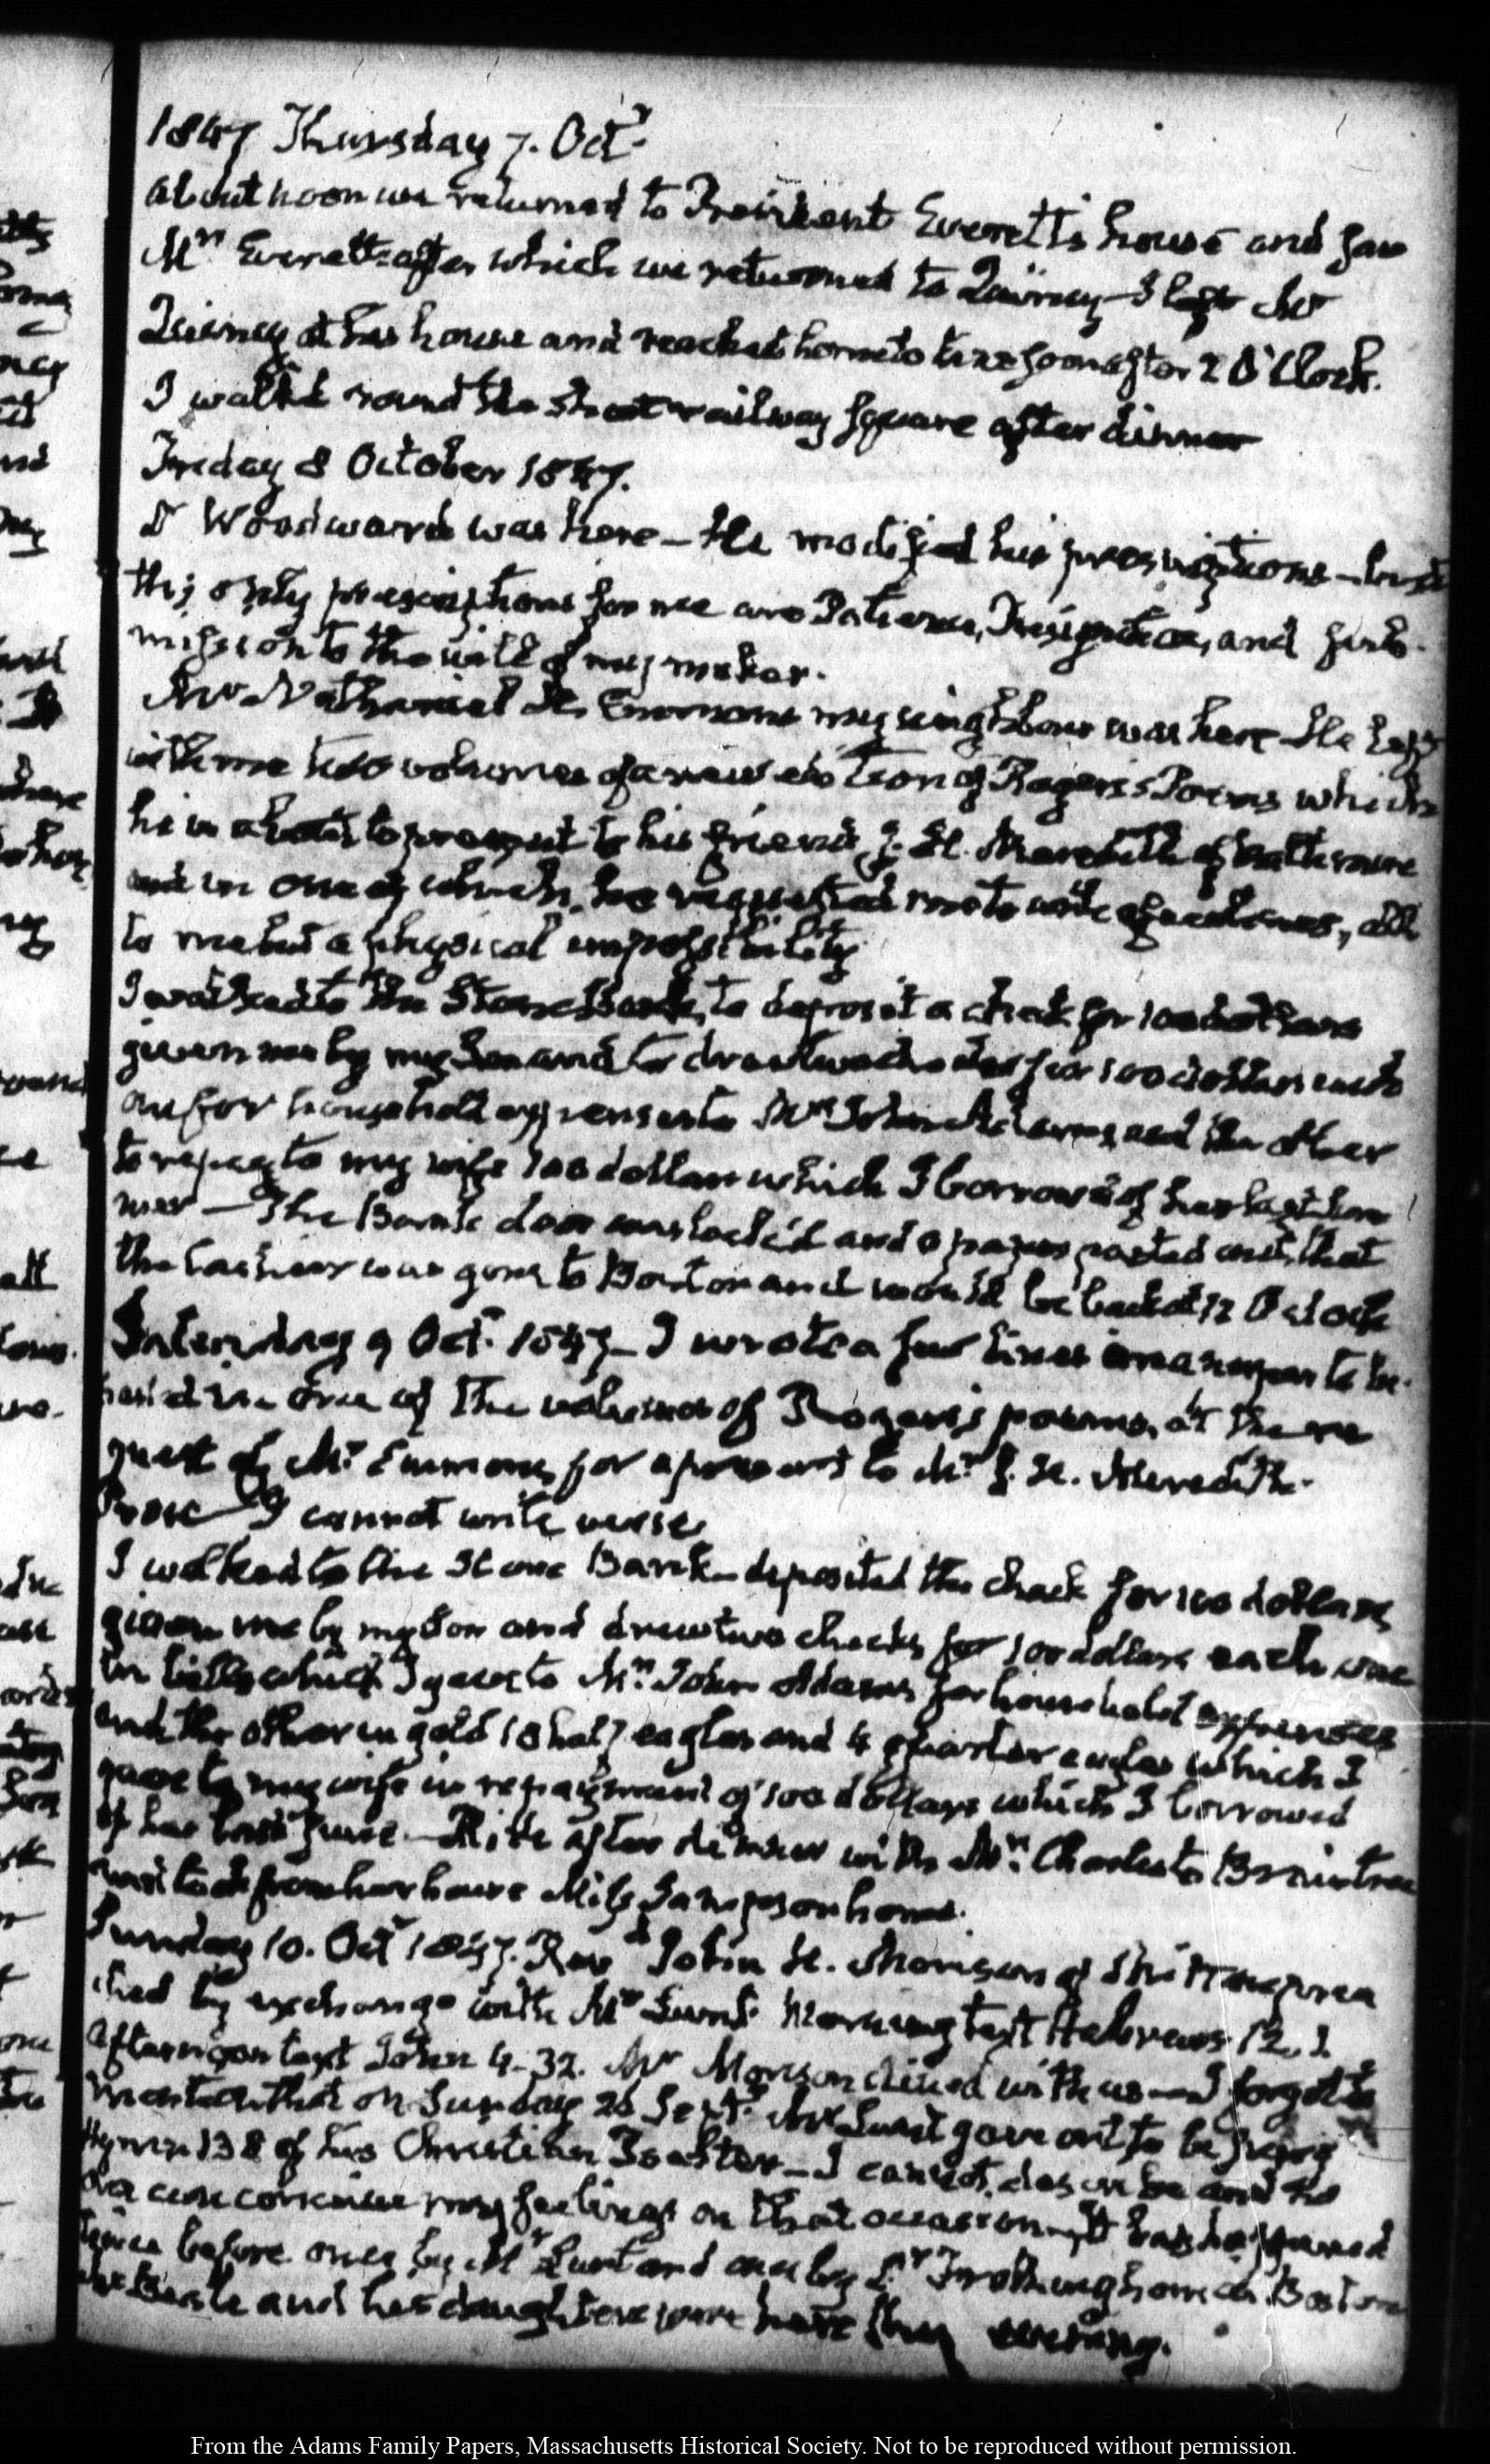 1847 Thursday 7. Octr
about noon we returned to President Everett's house and saw
Mrs Everett after which we returned to Quincy I left Mr
Quincy at his house and reached home to dine soon after 2 O'Clock.
I walk'd round the Street railway square after dinner
Friday 8 October 1847.
Dr Woodward was here — He modified his prescriptions — but
the only prescriptions for me are Patience, Resignation, and sub-
mission to the will of my maker.
Mr Nathaniel H. Emmons my neighbour was here He left
with me two volumes of a new edition of Roger's Poems which
he is about to present to his friend J. H. Meredith of Baltimore
and in one of which he requested me to write a few lines, all
to me but a physical impossibility
I walked to the Stone Bank, to deposit a check for 100 dollars
given me by my Son and to draw two checks for 100 dollars each
one for household expenses to Mrs John Adams, and the other
to repay to my wife 100 dollars which I borrowed of her last
— The Bank door was lock'd and a paper posted out, that
the Cashier was gone to Boston and would be back at 12 O'Clock
Saturday 9 Octr 1847 — I wrote a few lines on a paper to be
in one of the volumes of Roger's poems, at the re
quest of Mr Emmons, for a present to Mr J. H. Meredith.
Prose — I cannot write verse,
I walked to the Stone Bank — deposited the check for 100 dollars
given me by my Son and drew two checks for 100 dollars each one
in bills which I gave to Mrs John Adams for household expenses
and the other in gold 18 half eagles and 4 quarter eagles which I
gave to my wife in repayment of 100 dollars which I borrowed
of her last June. — Ride after dinner with Mrs Charles to Braintree
and took from her house Miss Sampson home.
Sunday 10. Octr 1847. Revd John H. Morison of Milton prea
ched by exchange with Mr Lunt Morning text Hebrews 12. 1
Afternoon text John 4. 32. Mr Morison dined with us — I forgot to
mention that on Sunday 26 Septr Mr Lunt gave out to be sung
Hymn 138 of his Christian Psalter — I cannot describe and no
one can conceive my feelings on that occasion — It has happened
twice before once by Mr Lunt and once by Dr Frothingham in Boston
Mr Beale and his daughters were here this evening.
From the Adams Family Papers, Massachusetts Historical Society. Not to be reproduced without permission.